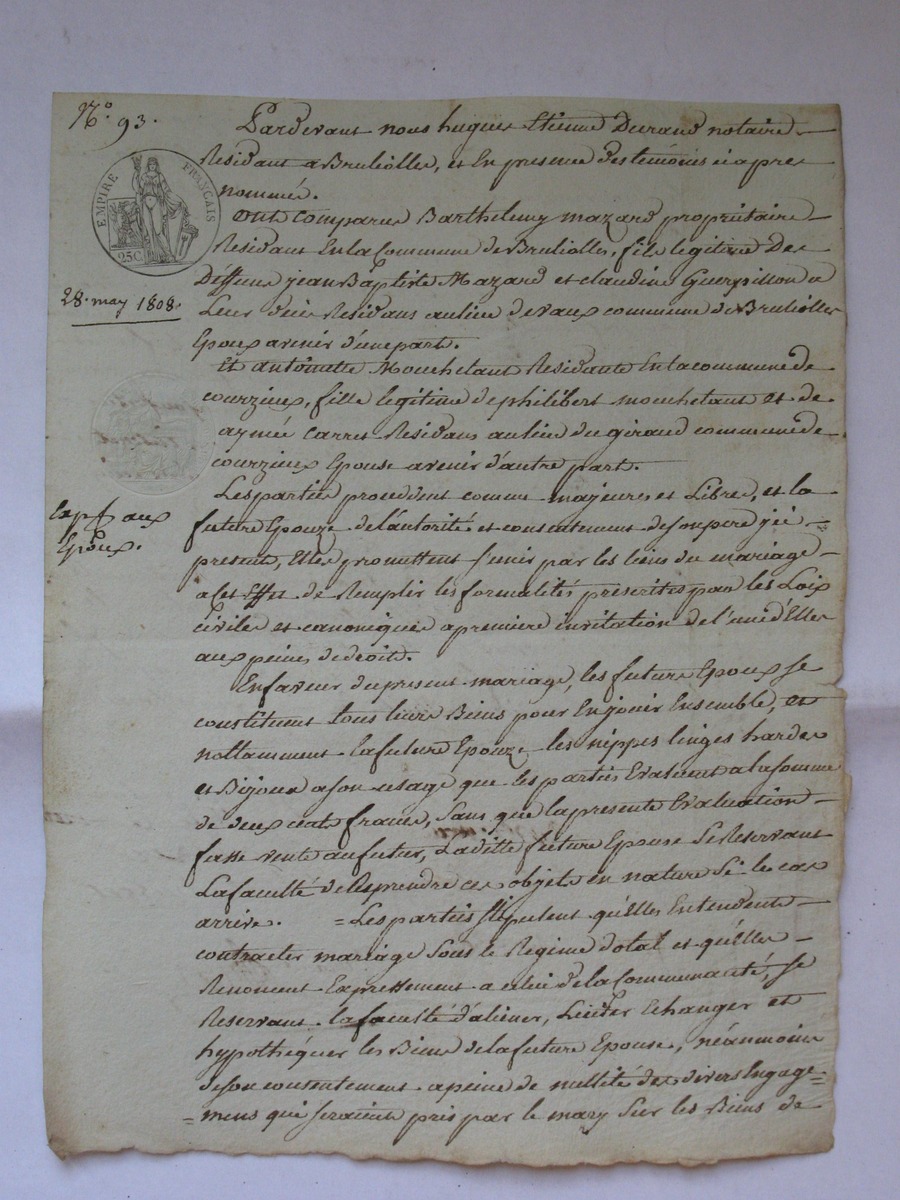 N.° 93.
EMPIRE FRANÇAIS
25 C.
28. may 1808.
Exp.on aux
Epoux.
Pardevant nous hugues Etienne Durand notaire
Residant a Brulioles, et En presence des temoins ci apres
nommés.
Ont Comparus Barthelemy mazard propriétaire
Residant En la Commune de Brulioles, fils legitime De
Deffunt jean Baptiste Mazard et claudine Guerpillon a
Leur vivant Residans au lieu de vaux commune de Brulioles
Epoux avenir d'une part.
Et antoinette Mouchetant Residante En la commune de
courzieux, fille legitime de philibert mouchetant et de
aymée Carret Residans au lieu du giraud commune de
courzieux Epouse avenir d'autre part.
Les parties procedent comme majeures et Libres, et la
future Epouze de l'autorité et consentement de son pere ici
present, Elles promettent s'unir par les liens du mariage
a cet Effet de Remplir les formalités prescrites par les Loix
civiles et canoniques a premiere invitation de l'une d'Elles
aux peines de droit.
En faveur du present mariage, les future Epoux se
constituent tous leurs Biens pour En jouir Ensemble, et
nottamment la future Epouze les nippes linges hardes
et Bijoux a son usage que les parties Evaluent a la somme
de deux cent francs, Sans que la presente Evaluation
fasse vente au futur, Laditte future Epouse Se Reservant
La faculté de Reprendre ces objets en nature Si le cas
arrive. = Les parties stipulent qu'Elles Entendent
contracter mariage Sous le Regime dotal et qu'Elles
Renoncent Expressement a celui de la Communauté, se
Reservant la faculté d'aliener, Liciter Echanger et
hypothéquer les Biens de la future Epouse, néanmoins
de son consentement a peine de nullité des divers Engage=
=mens qui seraient pris par le mary Sur les Biens de